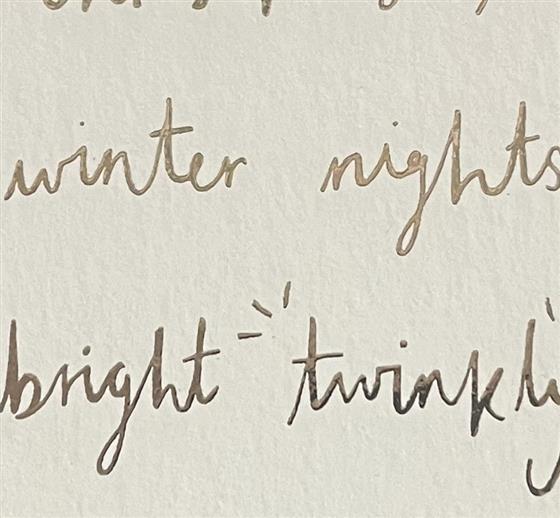 winter nights
bright twinkly